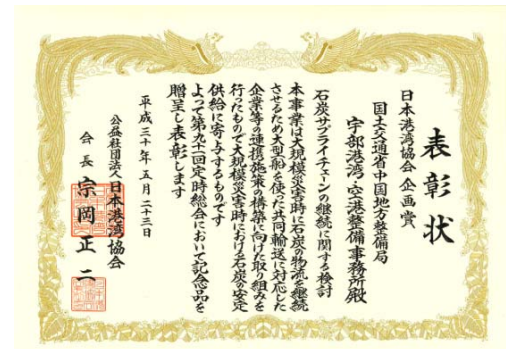 表彰状
日本港湾協会 企画賞
国土交通省中国地方整備局
宇部港湾・空港整備事務所殿
石炭サプライチェーンの継続に関する検討
本事業は大規模災害時に石炭の物流を継続
させるため大型船を使った共同輸送に対応した
企業等の連携施策の構築に向けた取り組みを
行ったもので大規模災害時における石炭の安定
供給に寄与するものです
よって第九十一回定時総会において記念品を
贈呈し表彰します
平成三十年五月二十三日
公益社団法人日本港湾協会
会長 宗岡正二